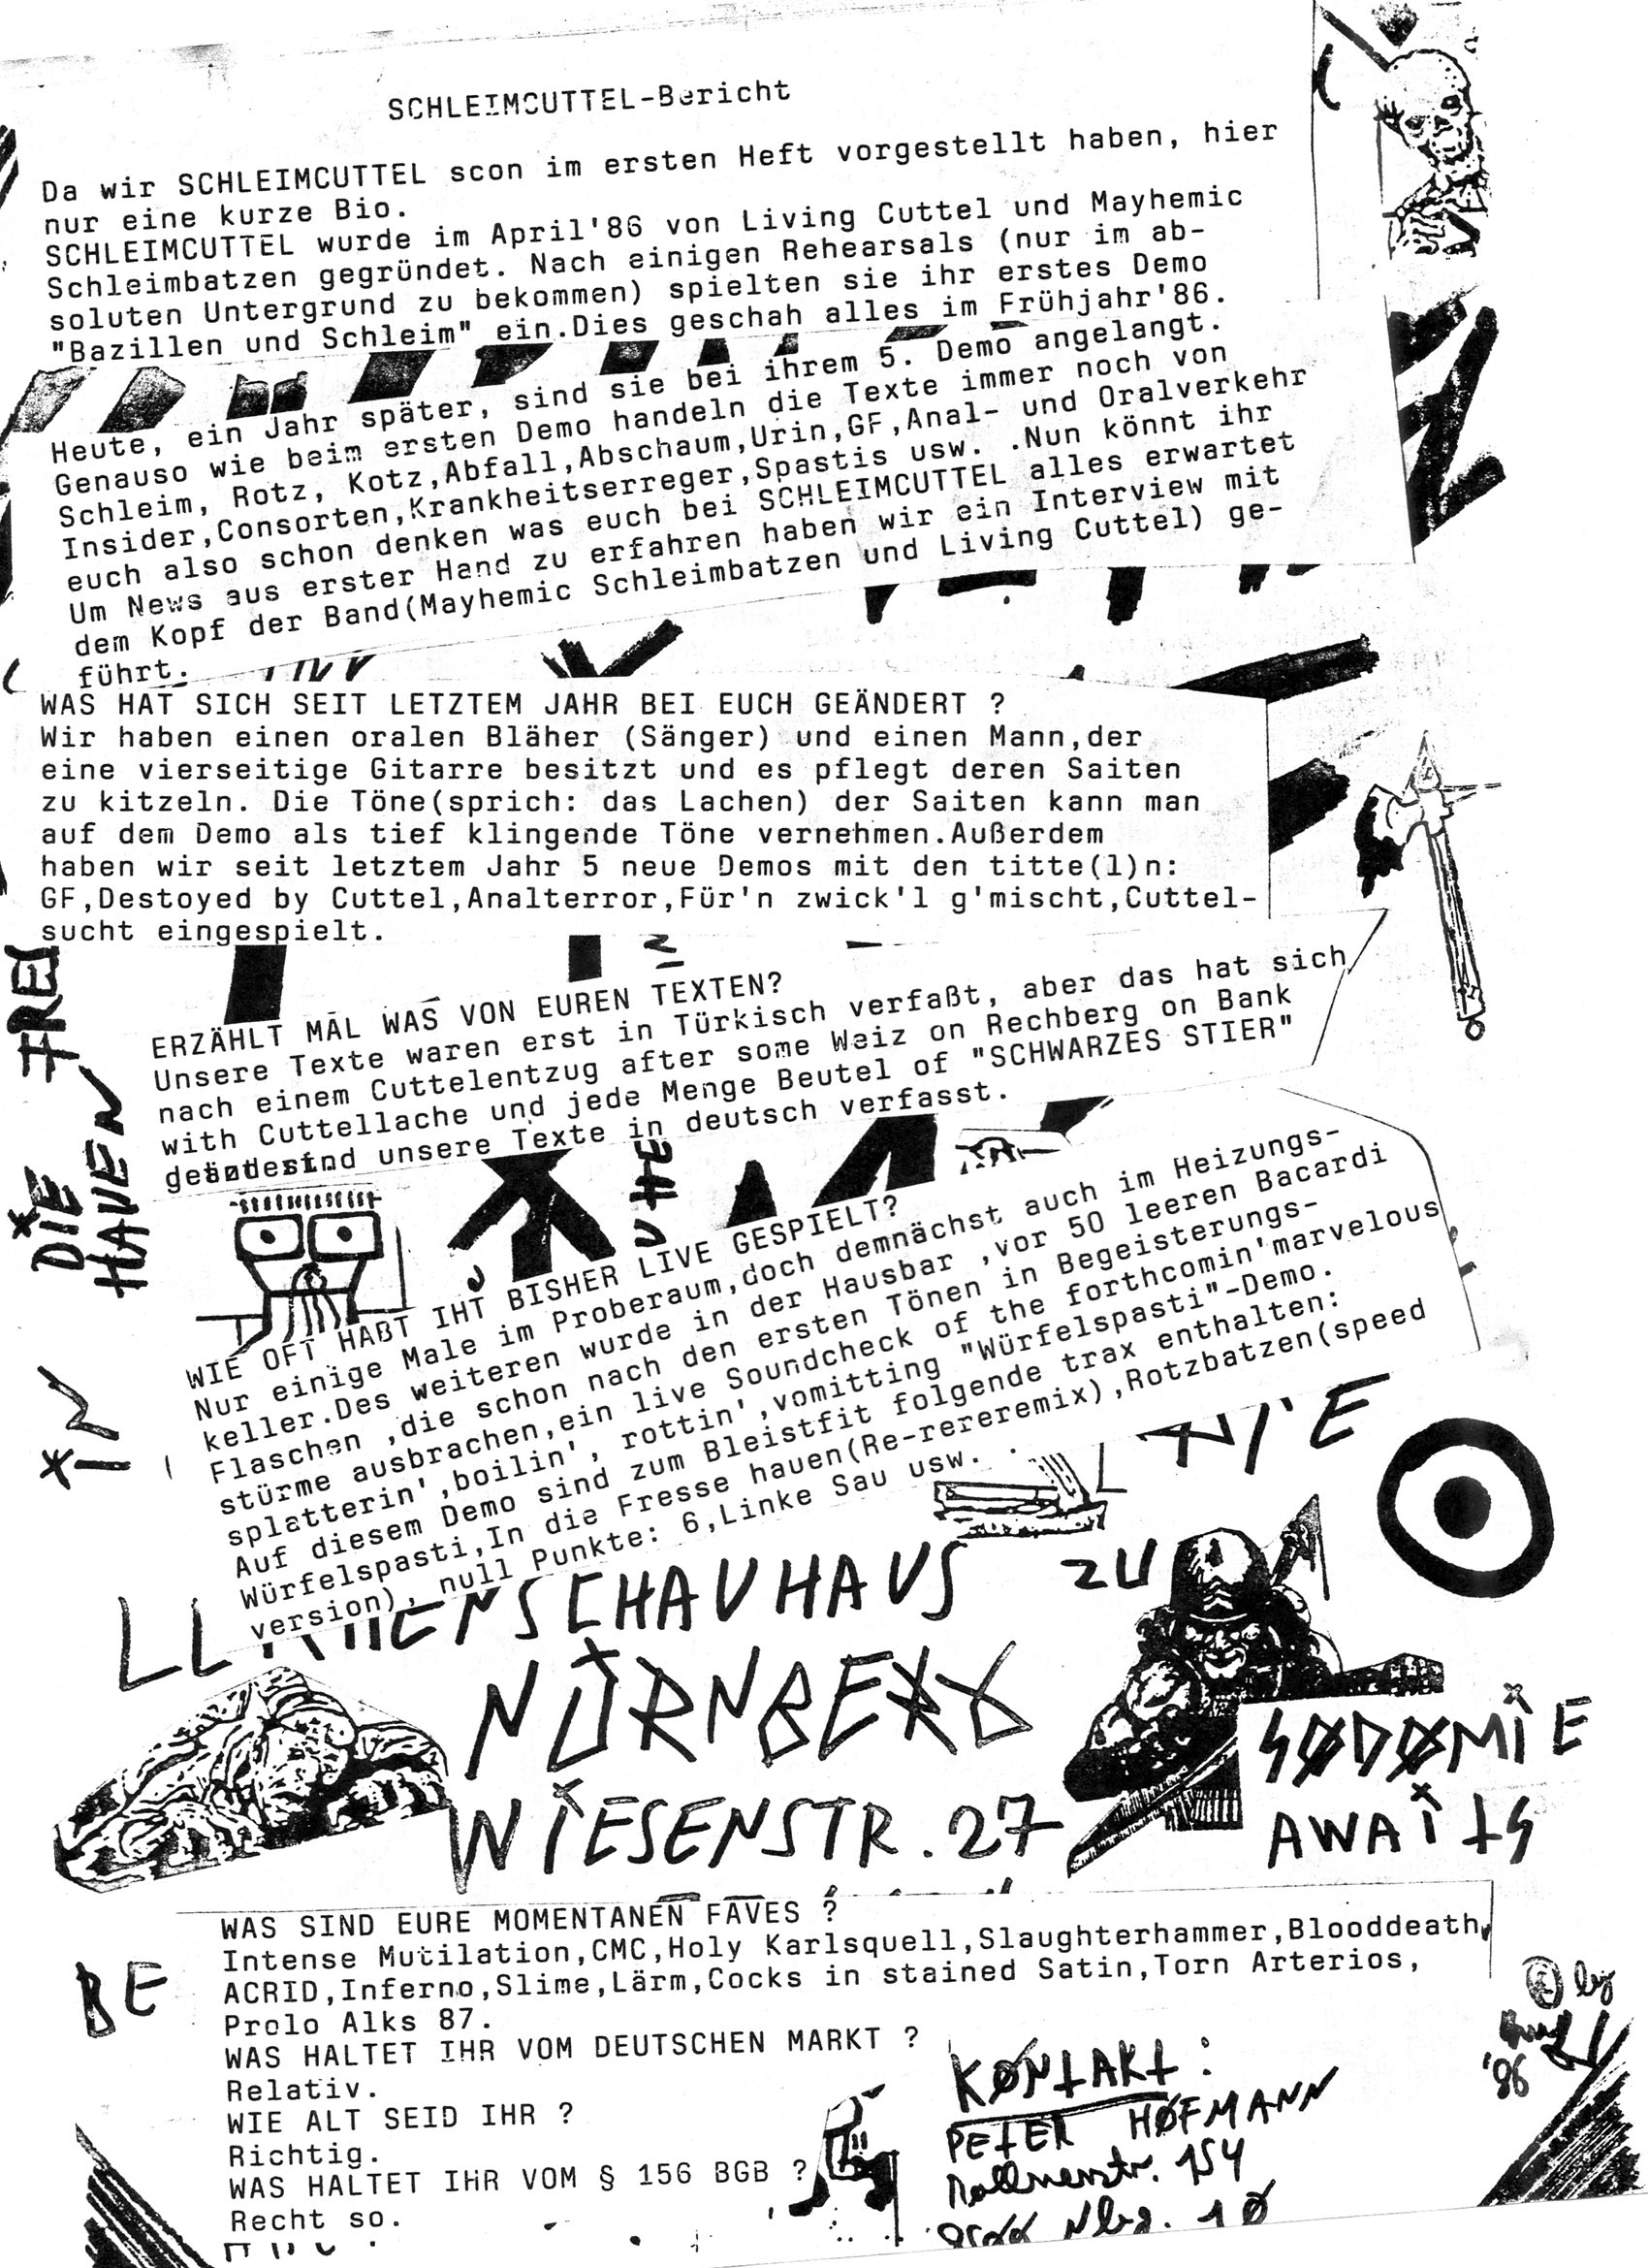 SCHLEIMCUTTEL-Bericht
Da wir SCHLEIMCUTTEL scon im ersten Heft vorgestellt haben, hier
nur eine kurze Bio.
SCHLEIMCUTTEL wurde im April'86 von Living Cuttel und Mayhemic
Schleimbatzen gegründet. Nach einigen Rehearsals (nur im ab-
soluten Untergrund zu bekommen) spielten sie ihr erstes Demo
"Bazillen und Schleim" ein.Dies geschah alles im Frühjahr'86.
Heute, ein Jahr später, sind sie bei ihrem 5. Demo angelangt.
Genauso wie beim ersten Demo handeln die Texte immer noch von
Schleim, Rotz, Kotz,Abfall,Abschaum,Urin,GF,Anal- und Oralverkehr
Insider,Consorten,Krankheitserreger,Spastis usw. .Nun könnt ihr
euch also schon denken was euch bei SCHLEIMCUTTEL alles erwartet
Um News aus erster Hand zu erfahren haben wir ein Interview mit
dem Kopf der Band(Mayhemic Schleimbatzen und Living Cuttel) ge-
führt.
WAS HAT SICH SEIT LETZTEM JAHR BEI EUCH GEÄNDERT ?
Wir haben einen oralen Bläher (Sänger) und einen Mann,der
eine vierseitige Gitarre besitzt und es pflegt deren Saiten
zu kitzeln. Die Töne(sprich: das Lachen) der Saiten kann man
auf dem Demo als tief klingende Töne vernehmen.Außerdem
haben wir seit letztem Jahr 5 neue Demos mit den titte(l)n:
GF,Destoyed by Cuttel,Analterror,Für'n zwick'l g'mischt,Cuttel-
sucht eingespielt.
FREI
DIE
HAUEN
IN
ERZÄHLT MAL WAS VON EUREN TEXTEN?
Unsere Texte waren erst in Türkisch verfaßt, aber das hat sich
nach einem Cuttelentzug after some Weiz on Rechberg on Bank
with Cuttellache und jede Menge Beutel of "SCHWARZES STIER"
geändert. sind unsere Texte in deutsch verfasst.
WIE OFT HABT IHT BISHER LIVE GESPIELT?
Nur einige Male im Proberaum,doch demnächst auch im Heizungs-
keller.Des weiteren wurde in der Hausbar ,vor 50 leeren Bacardi
Flaschen ,die schon nach den ersten Tönen in Begeisterungs-
stürme ausbrachen,ein live Soundcheck of the forthcomin'marvelous
splatterin',boilin', rottin',vomitting "Würfelspasti"-Demo.
Auf diesem Demo sind zum Bleistfit folgende trax enthalten:
Würfelspasti,In die Fresse hauen(Re-rereremix),Rotzbatzen(speed
version), null Punkte: 6,Linke Sau usw. .
SCHAUHAUS ZU
NÜRNBERG
WIESENSTR. 27
SODOMIE
AWAITS
WAS SIND EURE MOMENTANEN FAVES ?
Intense Mutilation,CMC,Holy Karlsquell,Slaughterhammer,Blooddeath,
ACRID,Inferno,Slime,Lärm,Cocks in stained Satin,Torn Arterios,
Prolo Alks 87.
BE
WAS HALTET IHR VOM DEUTSCHEN MARKT ?
Relativ.
WIE ALT SEID IHR ?
Richtig.
WAS HALTET IHR VOM § 156 BGB ?
Recht so.
KONTAKT:
PETER HOFMANN
154
Nbg. 10
© by
'86